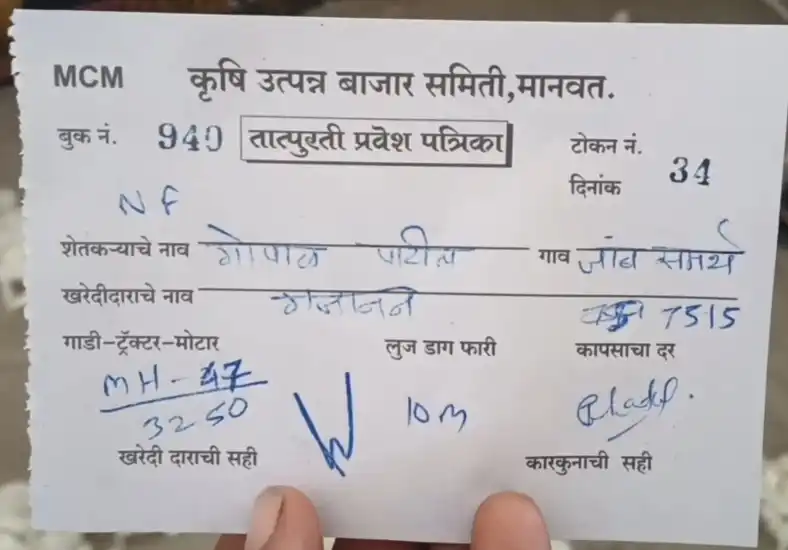 MCM कृषि उत्पन्न बाजार समिती,मानवत.
बुक नं. 940 तात्पुरती प्रवेश पत्रिका टोकन नं. 34
दिनांक
NF
शेतकऱ्याचे नाव गोपाळ पाटील गाव जांब समर्थ
खरेदीदाराचे नाव गजानन
7515
गाडी-ट्रॅक्टर-मोटार लुज डाग फारी कापसाचा दर
MH-47
3250 10 m
खरेदी दाराची सही कारकुनाची सही